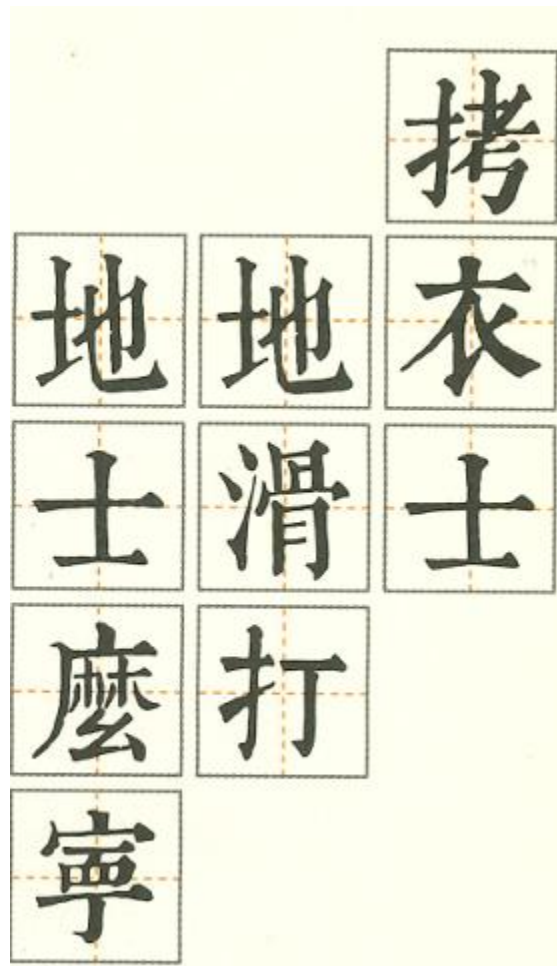 拷衣士
地滑打
地士麼寧